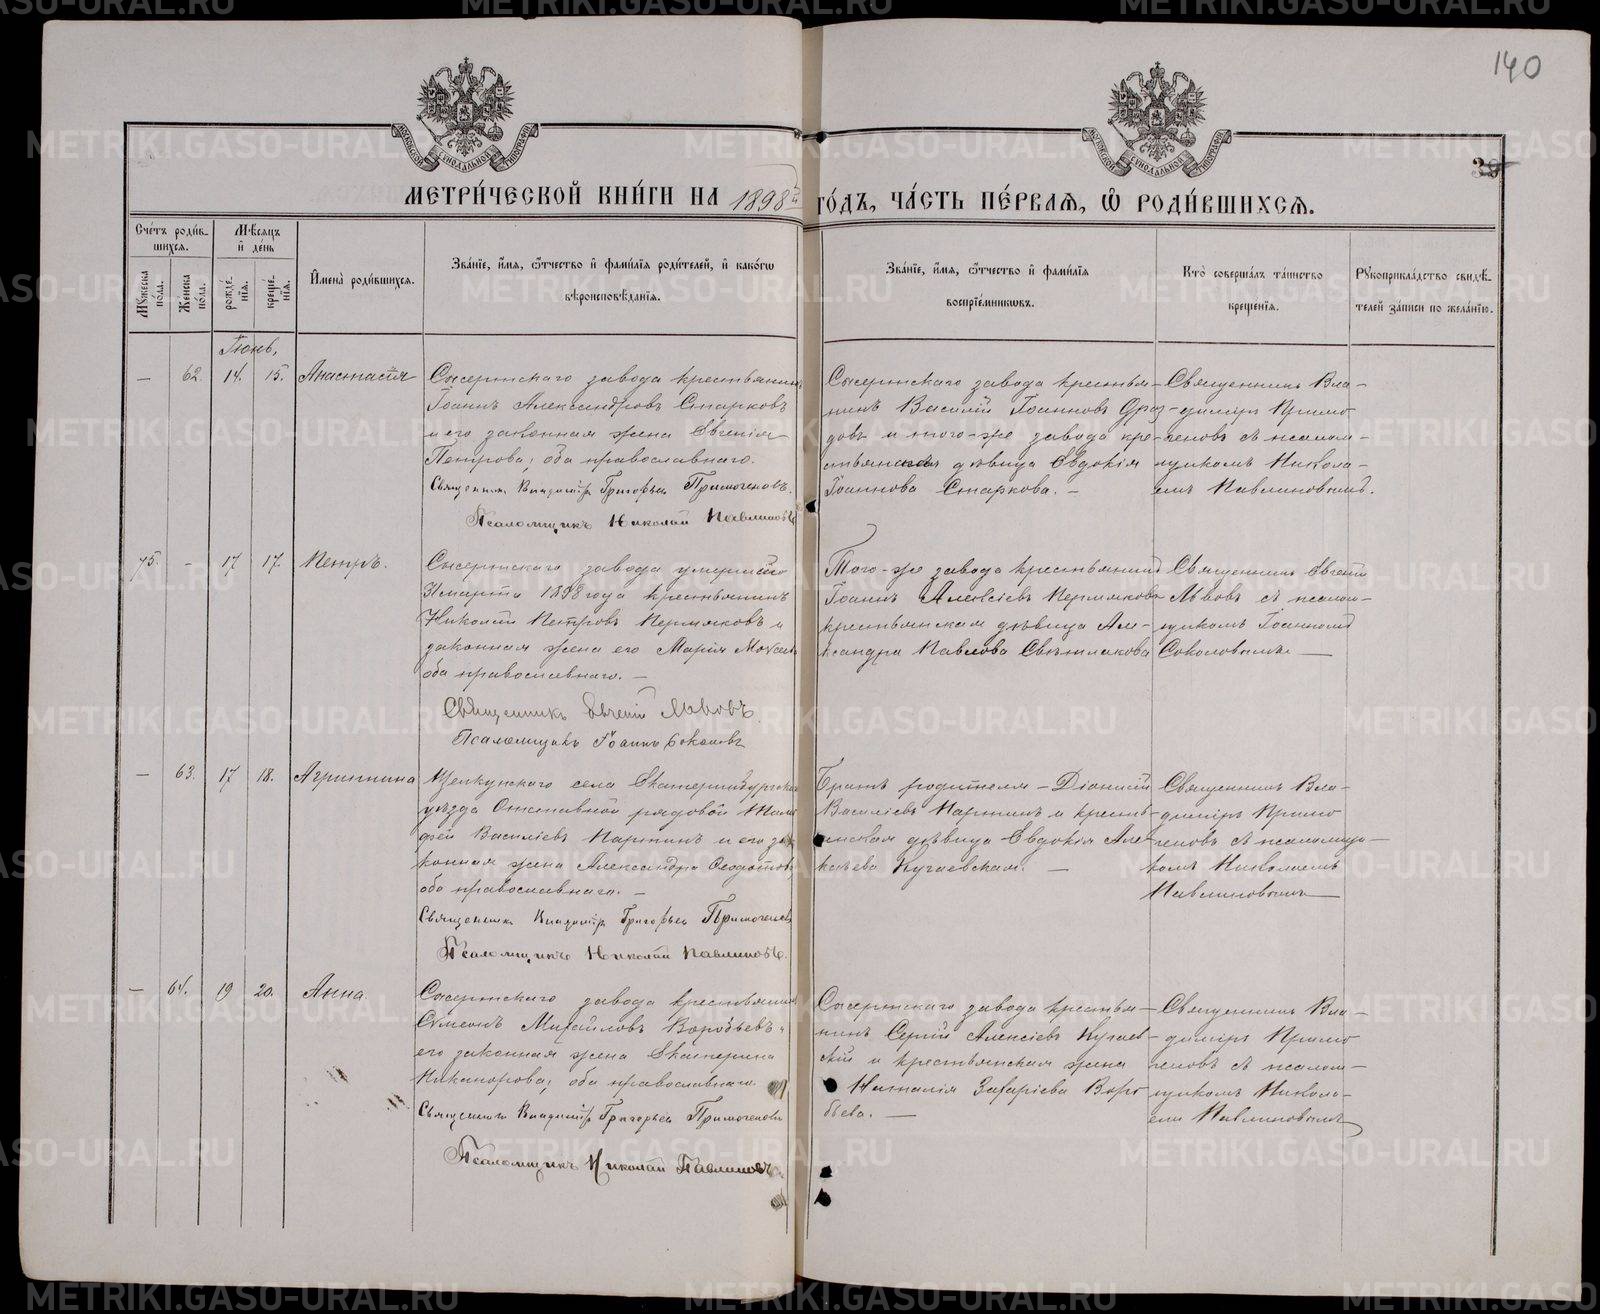 140
39
МЕТРИ́ЧЕСКОЙ КНИ́ГИ НА 1898й ГО́ДЪ, ЧА́СТЬ ПЕ́РВАѦ, Ѡ РОДИ́ВШИХСѦ.
Сче́тъ роди́в-
шихся.
Мѣ́сяцъ
и де́нь
Му́жеска по́ла.
Же́нска по́ла.
рожде́-
нїя.
креще́-
нїя.
Имена̀ роди́вшихся.
Зва́нїе, и́мя, ѻ́тчество и фами́лїя роди́телей, и како́гѡ
вѣроисповѣ́данїя.
Зва́нїе, и́мя, ѻ́тчество и фами́лїя
воспрїе́мникѡвъ.
Кто̀ соверша́лъ та́инство
креще́нїя.
Рꙋкоприкла́дство свидѣ́-
телей за́писи по жела́нїю.
Іюнь.
— 62. 14. 15. Анастасія
Сысертскаго завода крестьянинъ
Іоаннъ Александровъ Старковъ
и его законная жена Евгенія
Петрова, оба православнаго.
Священник Владимір Григорьев Примогеновъ.
Псаломщикъ Николай Павлиновъ
Сысертскаго завода крестья-
нинъ Василій Іоанновъ
довъ и того-же завода кре-
стьянская дѣвица Евдокія
Іоаннова Старкова. —
Священникъ Вла-
диміръ Примо-
геновъ съ псалом-
щикомъ Никола-
емъ Павлиновымъ.
75. - 17 17. Петръ.
Сысертскаго завода умершаго
марта 1898 года крестьянинъ
Николай Петровъ Пермяковъ и
законная жена его Марія
оба православнаго. —
Священникъ Евгеній Львовъ
Псаломщикъ Іоаннъ Соколовъ
Того-же завода крестьянинъ
Іоаннъ Алексіевъ Пермяковъ
крестьянская дѣвица Але-
ксандра Павлова Свѣтлакова
Священникъ Евгеній
Львовъ съ псалом-
щикомъ Іоанномъ
Соколовымъ —
— 63. 17 18. Агриппина
Щелкунскаго села Екатеринбургскаго
уѣзда Отставной рядовой
фей Василіевъ Паршинъ и его за-
конная жена Александра Ѳеодотова
оба православнаго. —
Священникъ Владимір Григорьев Примогеновъ
Псаломщикъ Николай Павлиновъ.
Братъ родителя - Діонисій
Василіевъ Паршинъ и кресть-
янская дѣвица Евдокія Але-
ксѣева Кугаевская. —
Священникъ Вла-
диміръ Примо-
геновъ съ псаломщи-
комъ Николаемъ
Павлиновымъ
— 64. 19 20. Анна.
Сысертскаго завода крестьянинъ
Симеонъ Михайловъ Воробьевъ и
его законная жена Екатерина
Никанорова, оба православнаго.
Священникъ Владимір Григорьев Примогеновъ
Псаломщикъ Николай Павлиновъ.
Сысертскаго завода крестья-
нинъ Сергій Алексіевъ Кугаев-
скій и крестьянская жена
Наталія Захаріева Воро-
бьева. —
Священникъ Вла-
диміръ Примо-
геновъ съ псалом-
щикомъ Никола-
емъ Павлиновымъ
METRIKI.GASO-URAL.RU